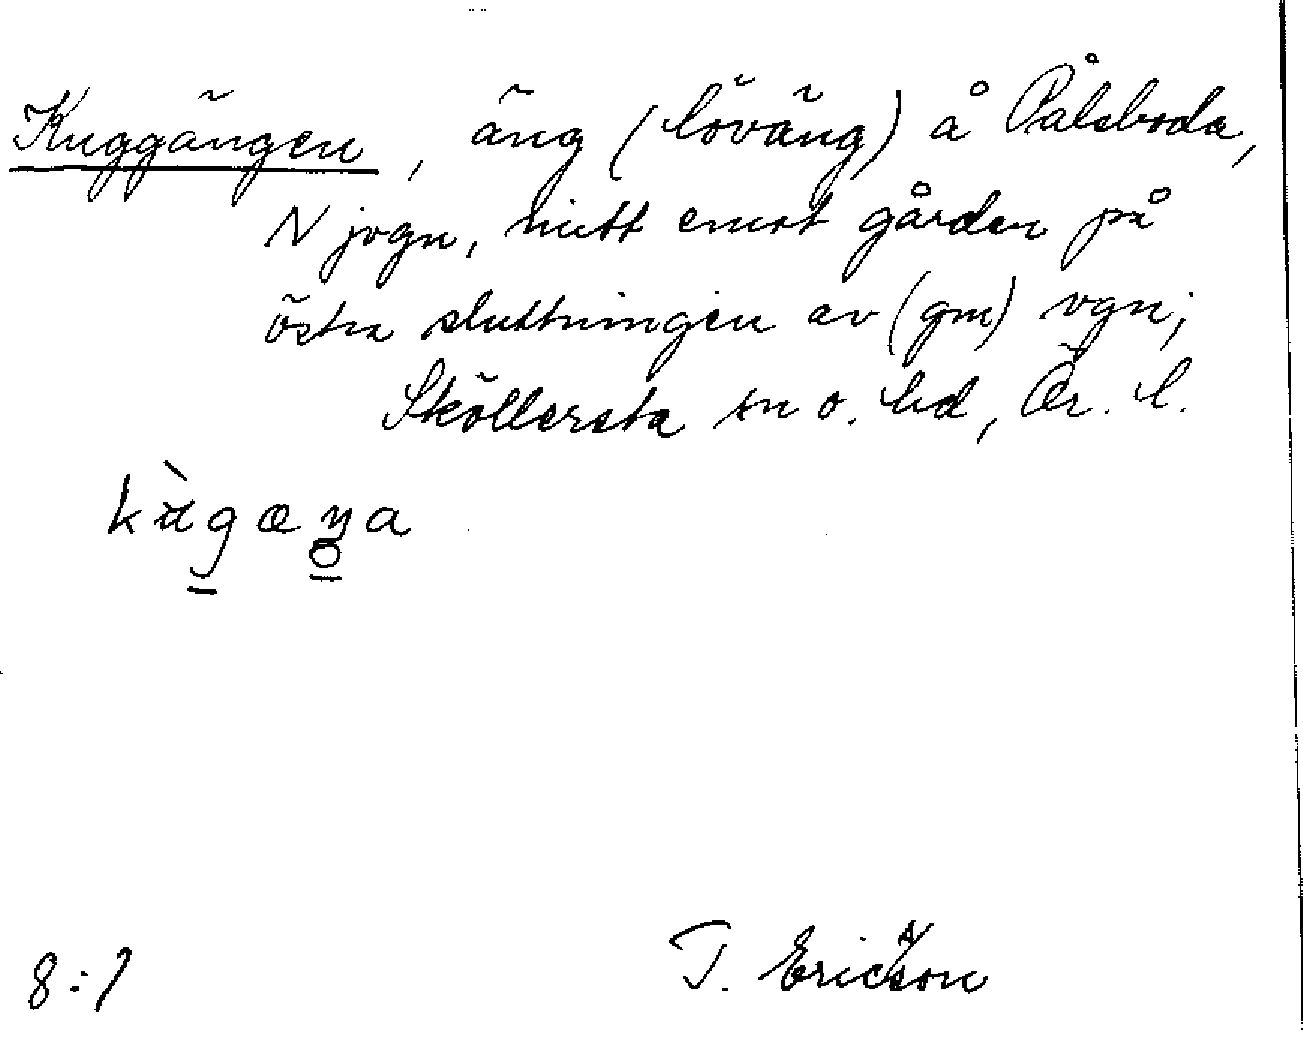 Kuggängen, äng (löväng) å Pålsboda,
N jvgn, mitt emot gården på
östra sluttningen av (gm) vgn;
Sköllersta sn o. hd, Ör. l.
kùgæŋa
8:7
T. Ericsson